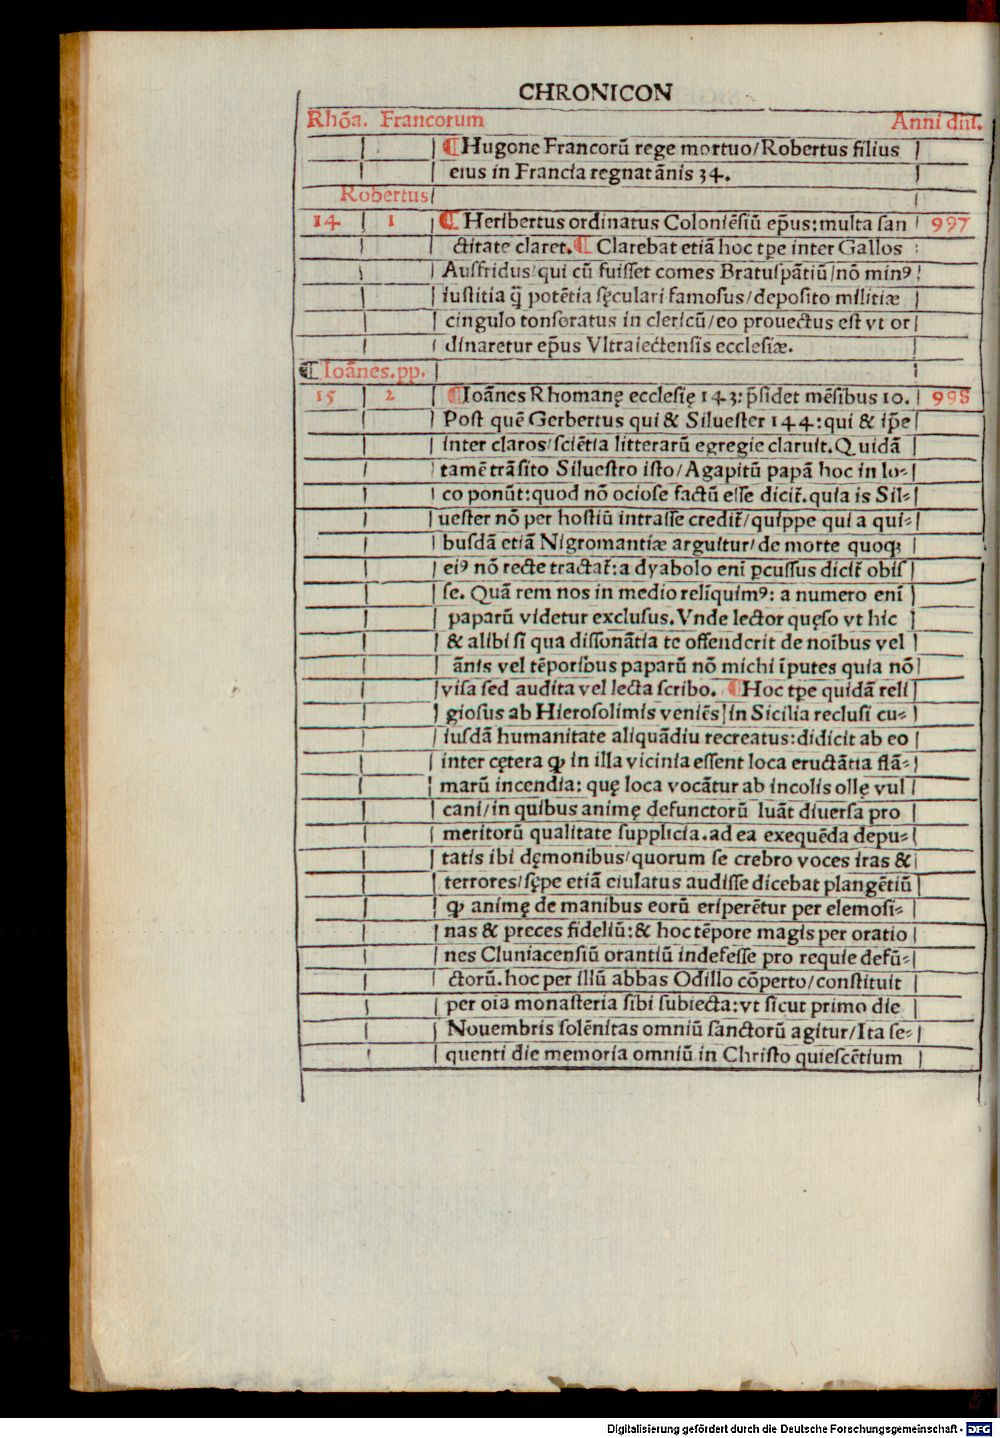 CHRONICON
Rhõa. Francorum Anni dñi.
¶Hugone Francorũ rege mortuo/Robertus filius
eius in Francia regnat ãnis 34.
Robertus
14 1 ¶ Heribertus ordinatus Coloniẽsiũ ep̃us:multa san 997
ctitate claret.¶ Clarebat etiã hoc tp̃e inter Gallos
Ausfridus/qui cũ fuisset comes Bratuspãtiũ/nõ minꝰ
iustitia q̃̃ potẽtia sęculari famosus/deposito militiæ
cingulo tonsoratus in clericũ/eo prouectus est vt or
dinaretur ep̃us Vltraiectensis ecclesiæ.
¶Ioãnes.pp.
15 2 ¶Ioãnes Rhomanę ecclesię 143:p̃sidet mẽsibus 10. 998
Post quẽ Gerbertus qui & Siluester 144:qui & ip̃e
inter claros/sciẽtia litterarũ egregie claruit.Quidã
tamẽ trãsito Siluestro isto/Agapitũ papã hoc in lo-
co ponũt:quod nõ ociose factũ esse dicit̃.quia is Sil-
uester nõ per hostiũ intrasse credit̃/quippe qui a qui-
busdã etiã Nigromantiæ arguitur/de morte quoqꝫ
eiꝰ nõ recte tractat̃:a dyabolo eni ꝑcussus dicit̃ obis
se. Quã rem nos in medio relĩquimꝰ: a numero eni
paparũ videtur exclusus.Vnde lector quęso vt hic
& alibi si qua dissonãtia te offenderit de noĩbus vel
ãnis vel tẽporibus paparũ nõ michi ĩputes quia nõ
visa sed audita vel lecta scribo. ¶Hoc tp̃e quidã reli
giosus ab Hierosolimis veniẽs/in Sicilia reclusi cu-
iusdã humanitate aliquãdiu recreatus:didicit ab eo
inter cętera ꝙ in illa vicinia essent loca eructãtia flã-
marũ incendia: quę loca vocãtur ab incolis ollę vul
cani/in quibus animę defunctorũ luãt diuersa pro
meritorũ qualitate supplicia.ad ea exequẽda depu-
tatis ibi dęmonibus/quorum se crebro voces iras &
terrores/sępe etiã eiulatus audisse dicebat plangẽtiũ
ꝙ animę de manibus eorũ eriperẽtur per elemosi-
nas & preces fideliũ:& hoc tẽpore magis per oratio
nes Cluniacensiũ orantiũ indefesse pro requie defũ-
ctorũ.hoc per illũ abbas Odillo cõperto/constituit
per oĩa monasteria sibi subiecta:vt sicut primo die
Nouembris solẽnitas omniũ sanctorũ agitur/Ita se-
quenti die memoria omniũ in Christo quiescẽtium
Digitalisierung gefördert durch die Deutsche Forschungsgemeinschaft - DFG